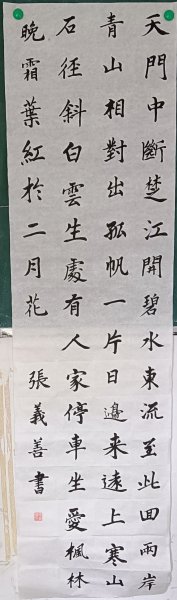 天門中斷楚江開碧水東流至此回兩岸
青山相對出孤帆一片日邊来遠上寒山
石徑斜白雲生處有人家停車坐愛楓林
晚霜葉紅於二月花
張義善書